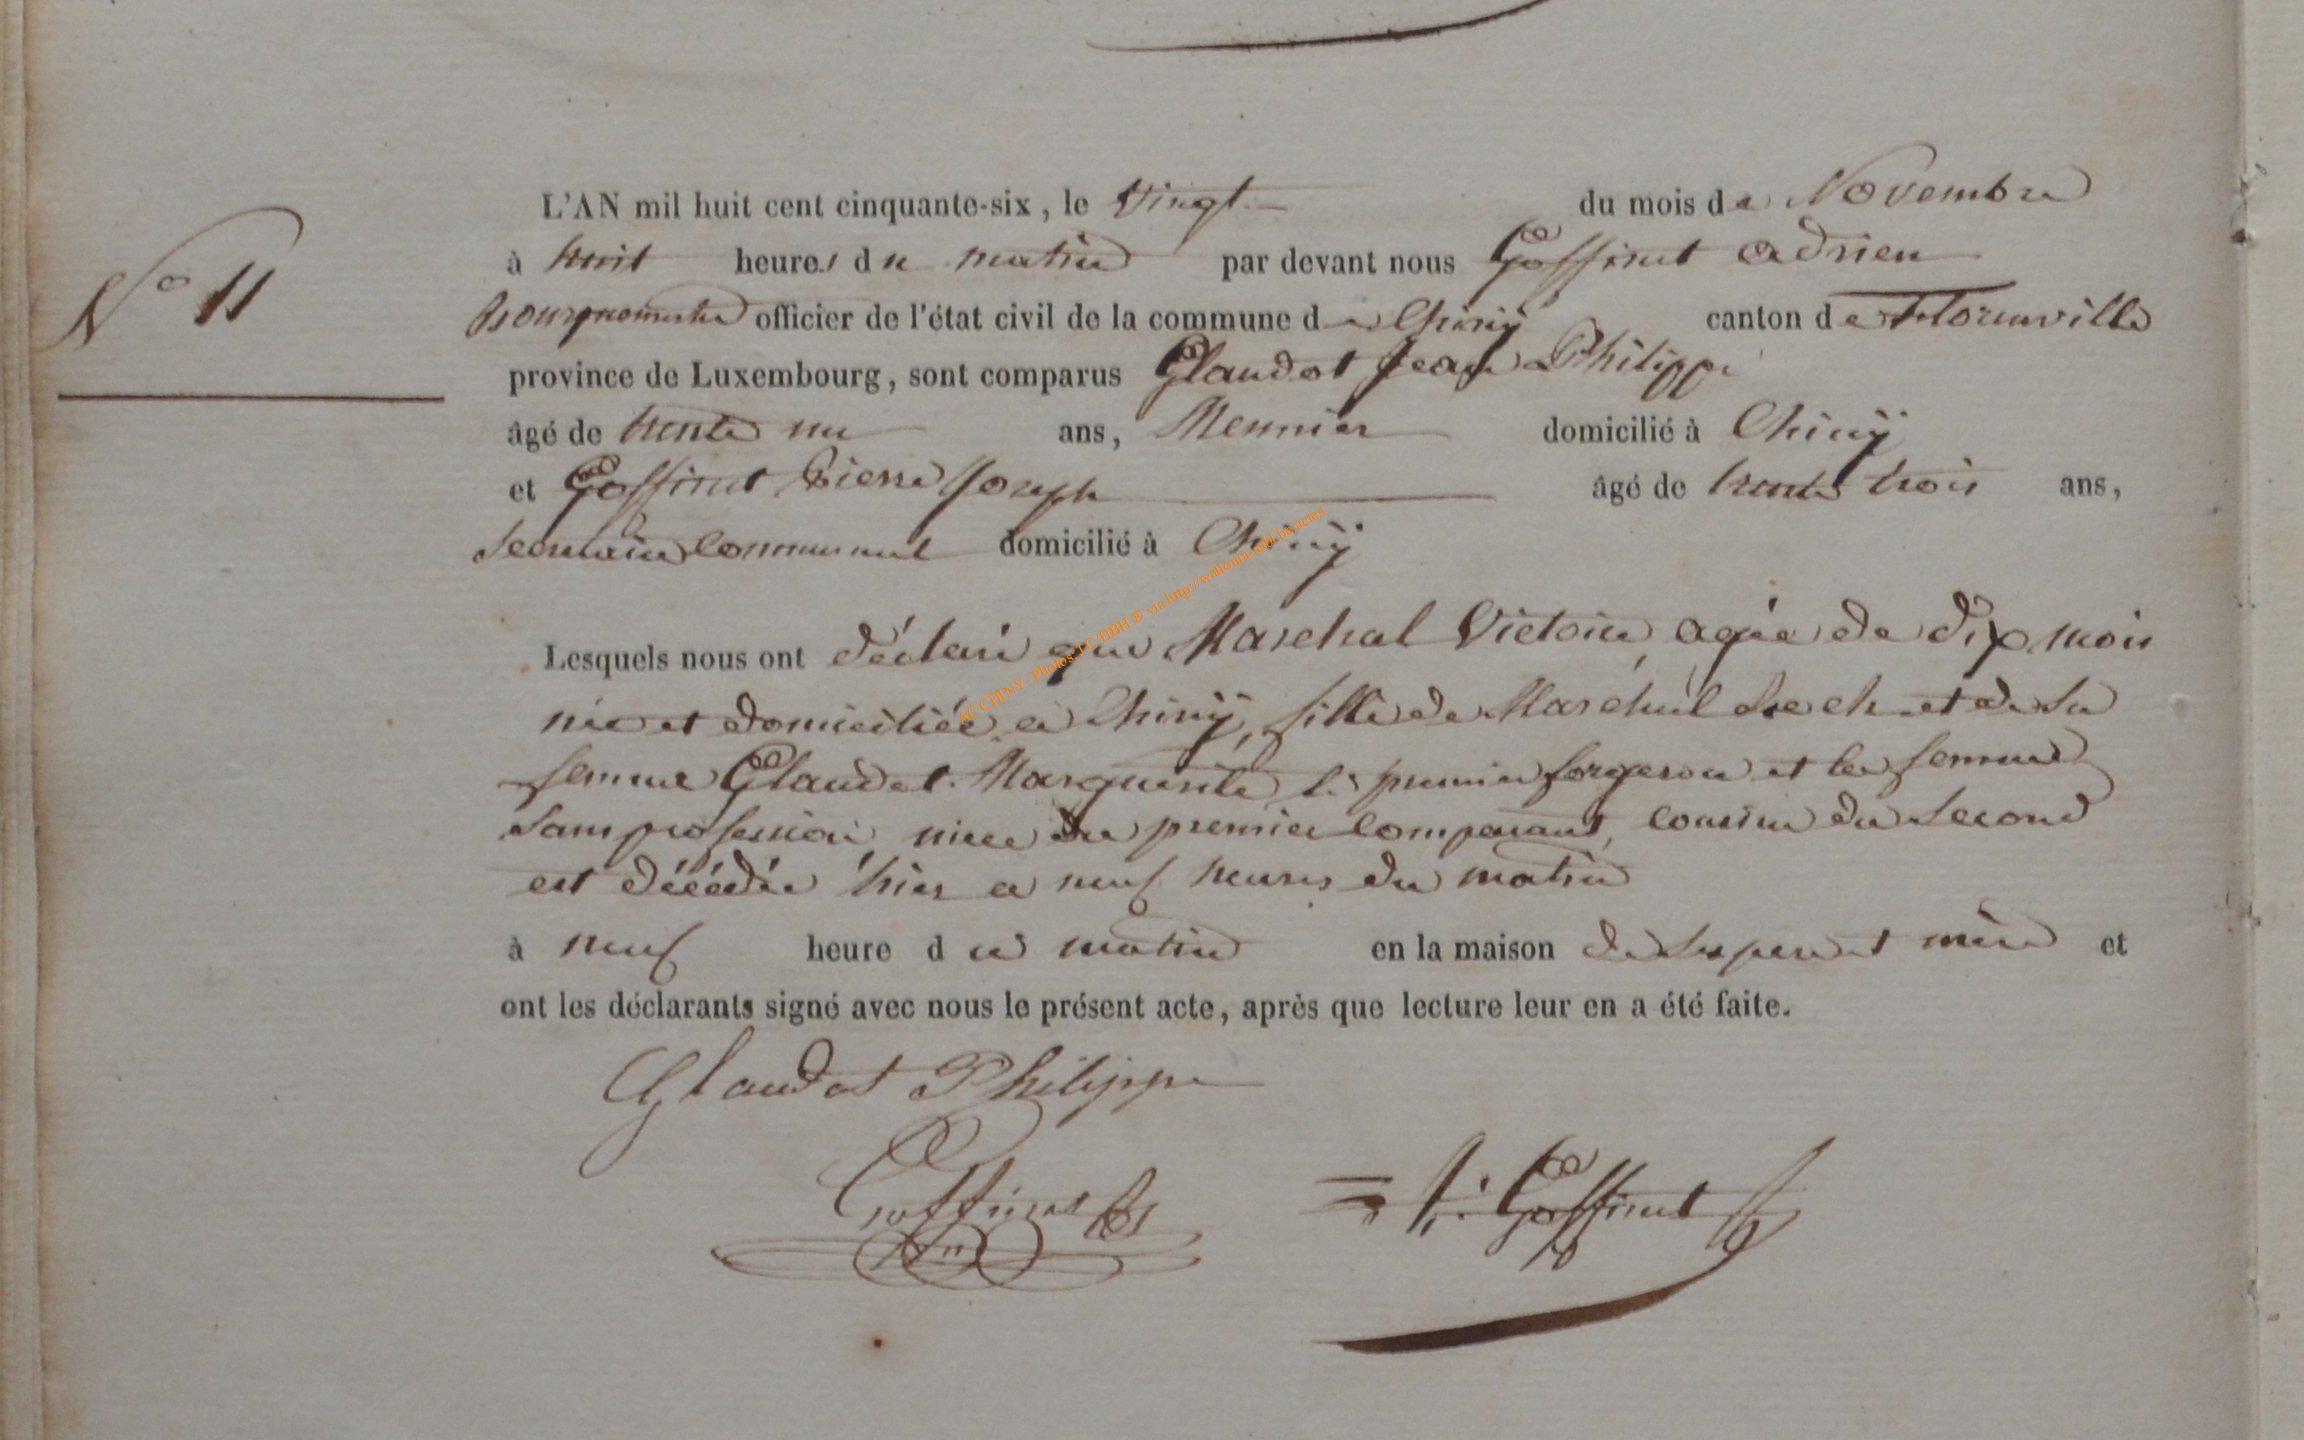 L'AN mil huit cent cinquante-six, le Vingt du mois de Novembre
N° 11
à huit heures du matin par devant nous Goffinet Adrien
Bourgmestre officier de l'état civil de la commune de Chiny canton de Florenville
province de Luxembourg, sont comparus Glaudot Jean Philippe
âgé de trente un ans, Meunier domicilié à Chiny
et Goffinet Pierre Joseph âgé de trente trois ans,
Secrétaire Communal domicilié à Chiny
Lesquels nous ont déclaré que Marechal Victoire, agée de dix mois
née et domiciliée à Chiny, fille de Maréchal et de Sa
femme Glaudot Marguerite, le premier forgeron et la femme
Sans profession nièce du premier Comparant, cousine du Second
est décédée hier a neuf heures du matin
à neuf heure du matin en la maison de Ses pere et mère et
ont les déclarants signé avec nous le présent acte, après que lecture leur en a été faite.
Glaudot Philippe
Goffinet
J: Goffinet
AC CHINY - Photos LC/HBH © via http://wallonia-asbl.be/actes